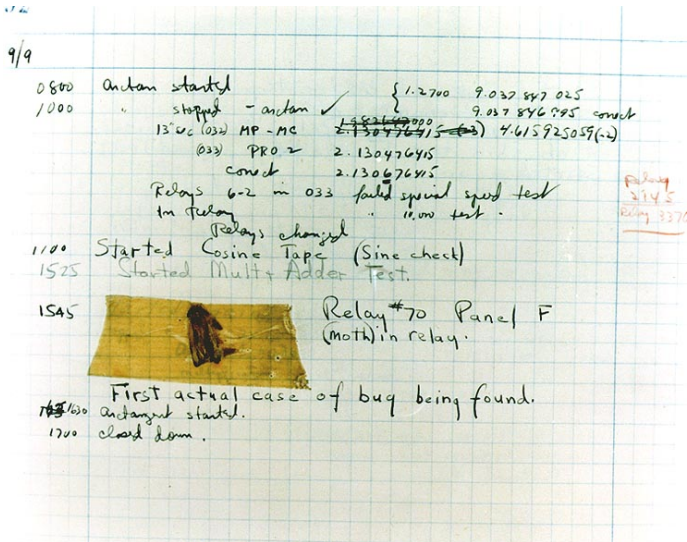 9/9
0800 arctan started { 1.2700 9.037 847 025
1000 " stopped - arctan ✓ 9.037 846 995 correct
13" uc (032) MP - MC 2.130476415 (-3) 4.615925059(-2)
(033) PRO 2 2.130476415
correct 2.130676415
Relays 6-2 in 033 failed special speed test
In Relay " 10,000 test .
Relay
2145
Relay 3370
Relays changed
1100 Started Cosine Tape (Sine check)
1525 Started Mult + Adder Test.
1545 Relay #70 Panel F
(moth) in relay.
First actual case of bug being found.
1630 arctangent started.
1700 closed down.